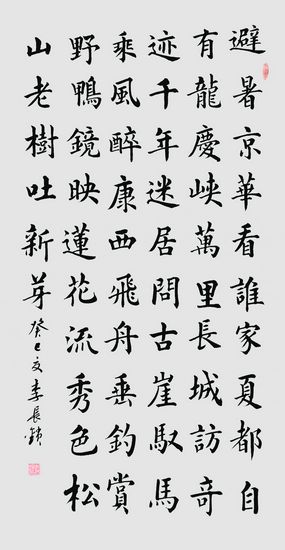 避暑京華看誰家夏都自
有龍慶峡萬里長城訪奇
迹千年迷居問古崖馭馬
乘風醉康西飛舟垂釣賞
野鴨鏡映蓮花流秀色松
山老樹吐新芽
癸巳夏李長鎖